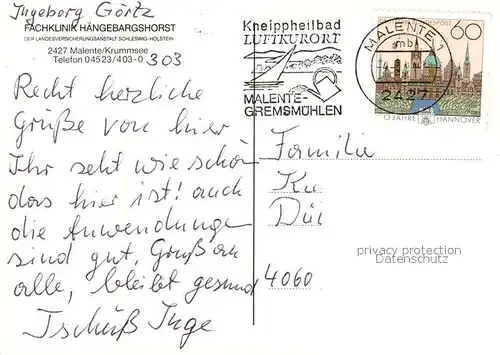 Ingeborg Görtz
FACHKLINIK HÄNGEBARGSHORST
DER LANDESVERSICHERUNGSANSTALT SCHLESWIG-HOLSTEIN
2427 Malente/Krummsee
Telefon 04523/403-0 303
Recht herzliche
Grüße von hier
Ihr seht wie schön
das hier ist! auch
die Anwendungen
sind gut, Gruß an
alle, bleibt gesund
Tschüß Inge
Kneippheilbad
LUFTKURORT
MALENTE-
GREMSMÜHLEN
MALENTE 1
mb
2427
BUNDESPOST
60
0 JAHRE HANNOVER
Familie
Ku
Dü
4060
privacy protection
Datenschutz